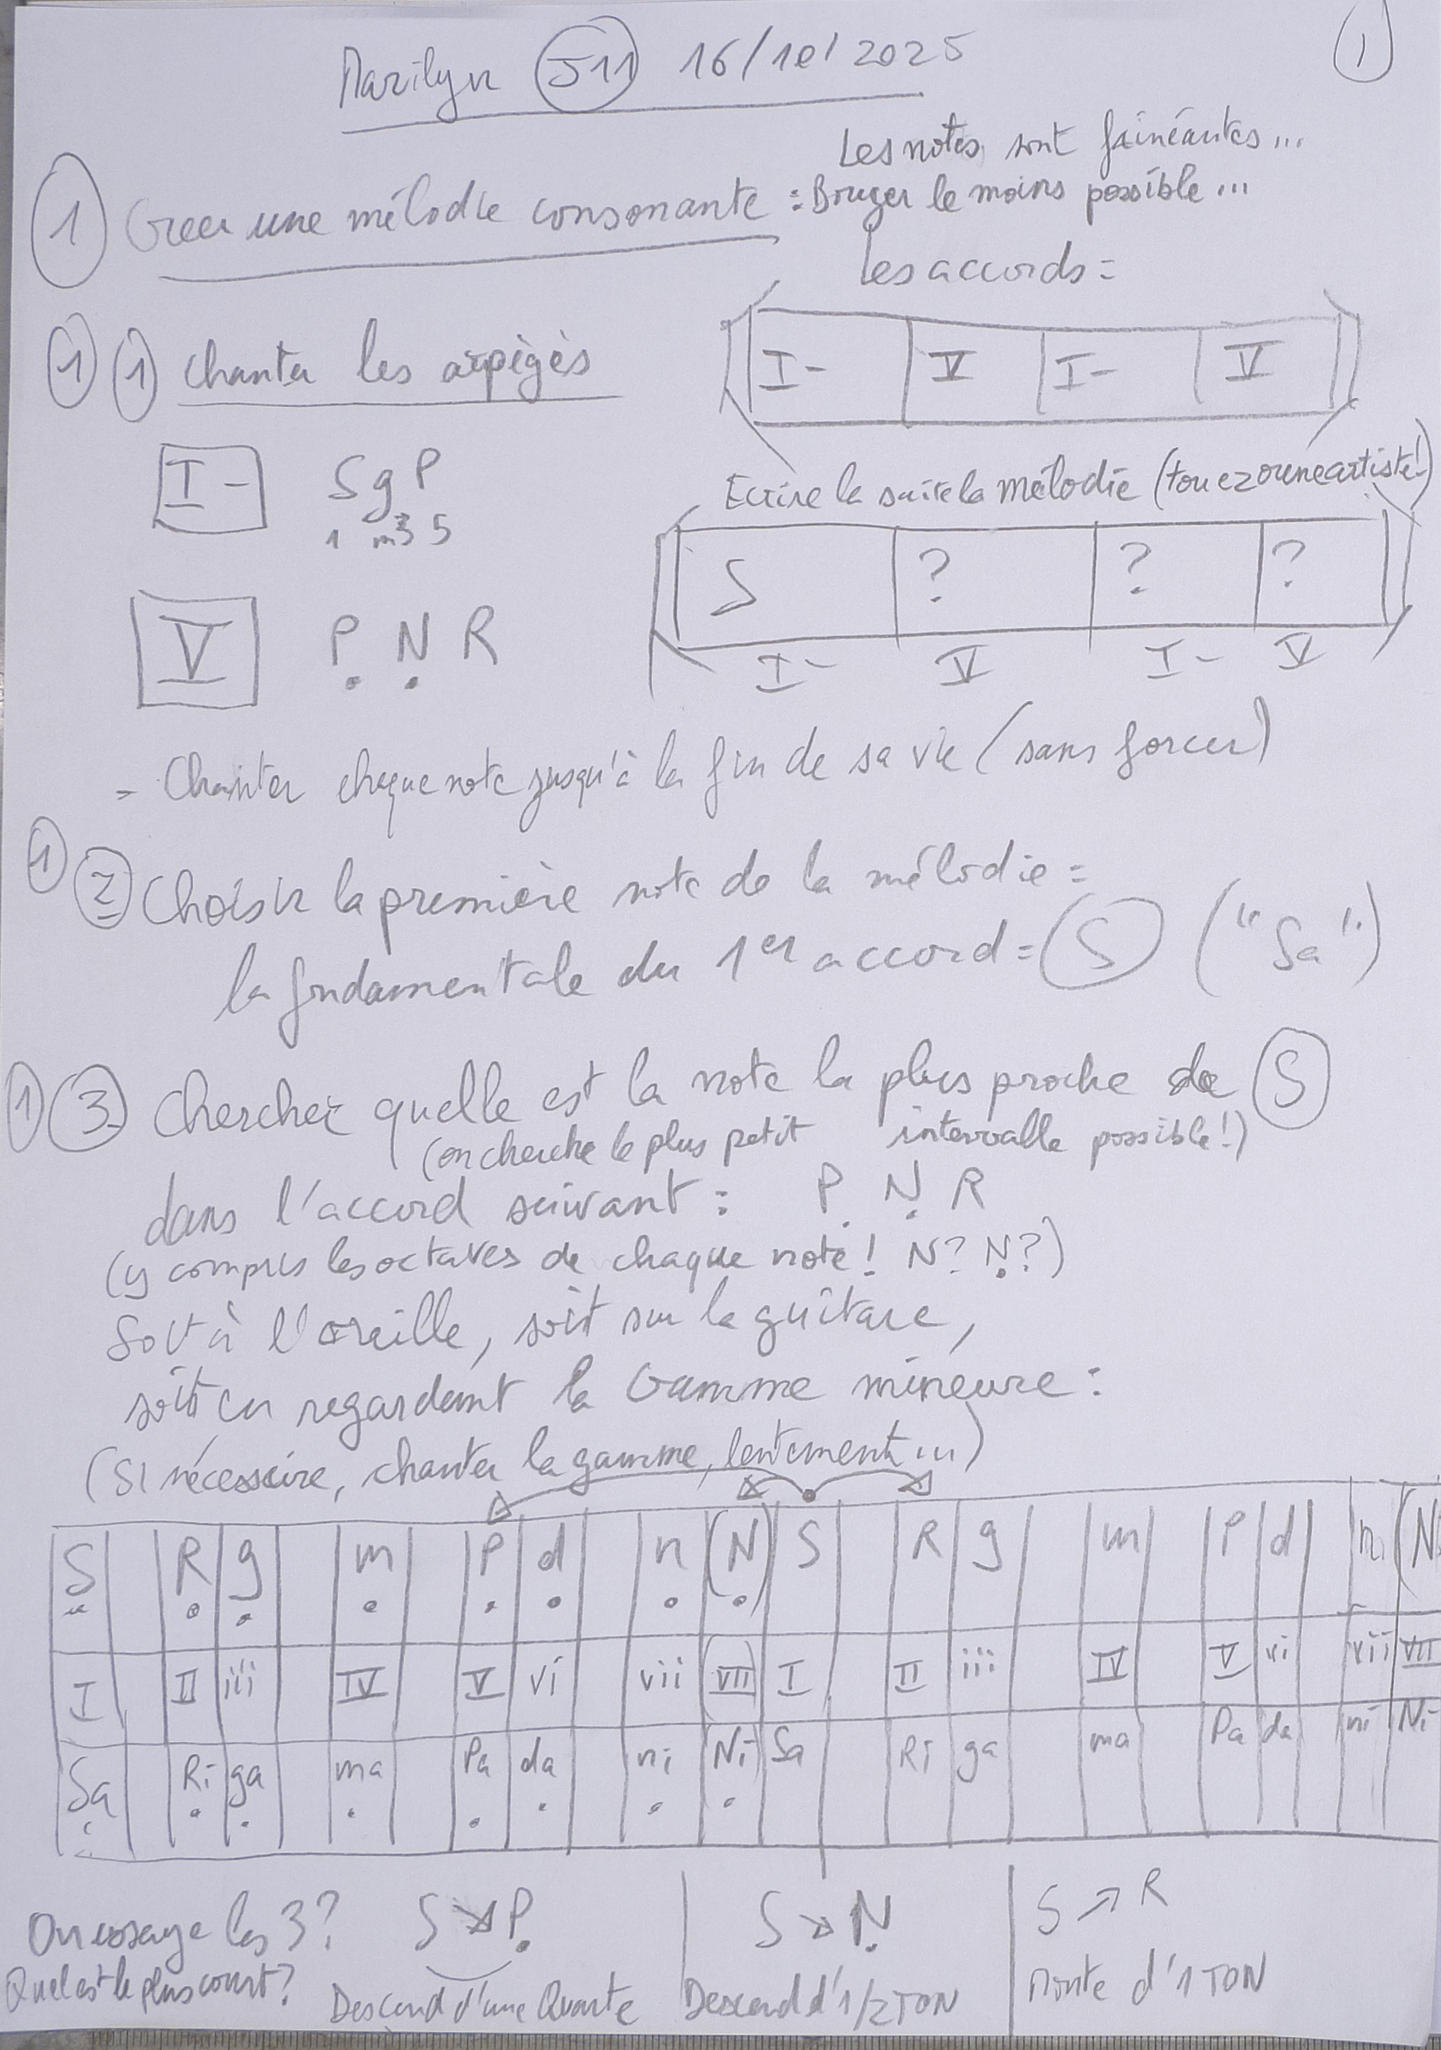 Marilyn J11 16/10/2025
1
Les notes sont fainéantes...
1 Créer une mélodie consonante : Bouger le moins possible...
Les accords =
1 1 Chanter les arpèges
I- V I- V
I- S g P
1 m3 5
Ecrire la suite la mélodie (tou ez oune artiste!)
S ? ? ?
I- V I- V
V P N R
= Chanter chaque note jusqu'à la fin de sa vie (sans forcer)
1 2 Choisir la première note de la mélodie =
la fondamentale du 1er accord = S ("Sa")
1 3 Chercher quelle est la note la plus proche de S
(on cherche le plus petit intervalle possible!)
dans l'accord suivant : P N R
(y compris les octaves de chaque note! N? N?)
Soit à l'oreille, soit sur la guitare,
soit en regardant la Gamme mineure :
(Si nécessaire, chanter la gamme, lentement...)
S R g m P d n (N) S R g m P d n (N
I II iii IV V vi vii (VII) I II iii IV V vi vii VII
Sa Ri ga ma Pa da ni Ni Sa Ri ga ma Pa da ni Ni
On essaye les 3? S ↘ P S ↘ N S ↗ R
Quel est le plus court? Descend d'une Quarte Descend d'1/2 TON Monte d'1 TON